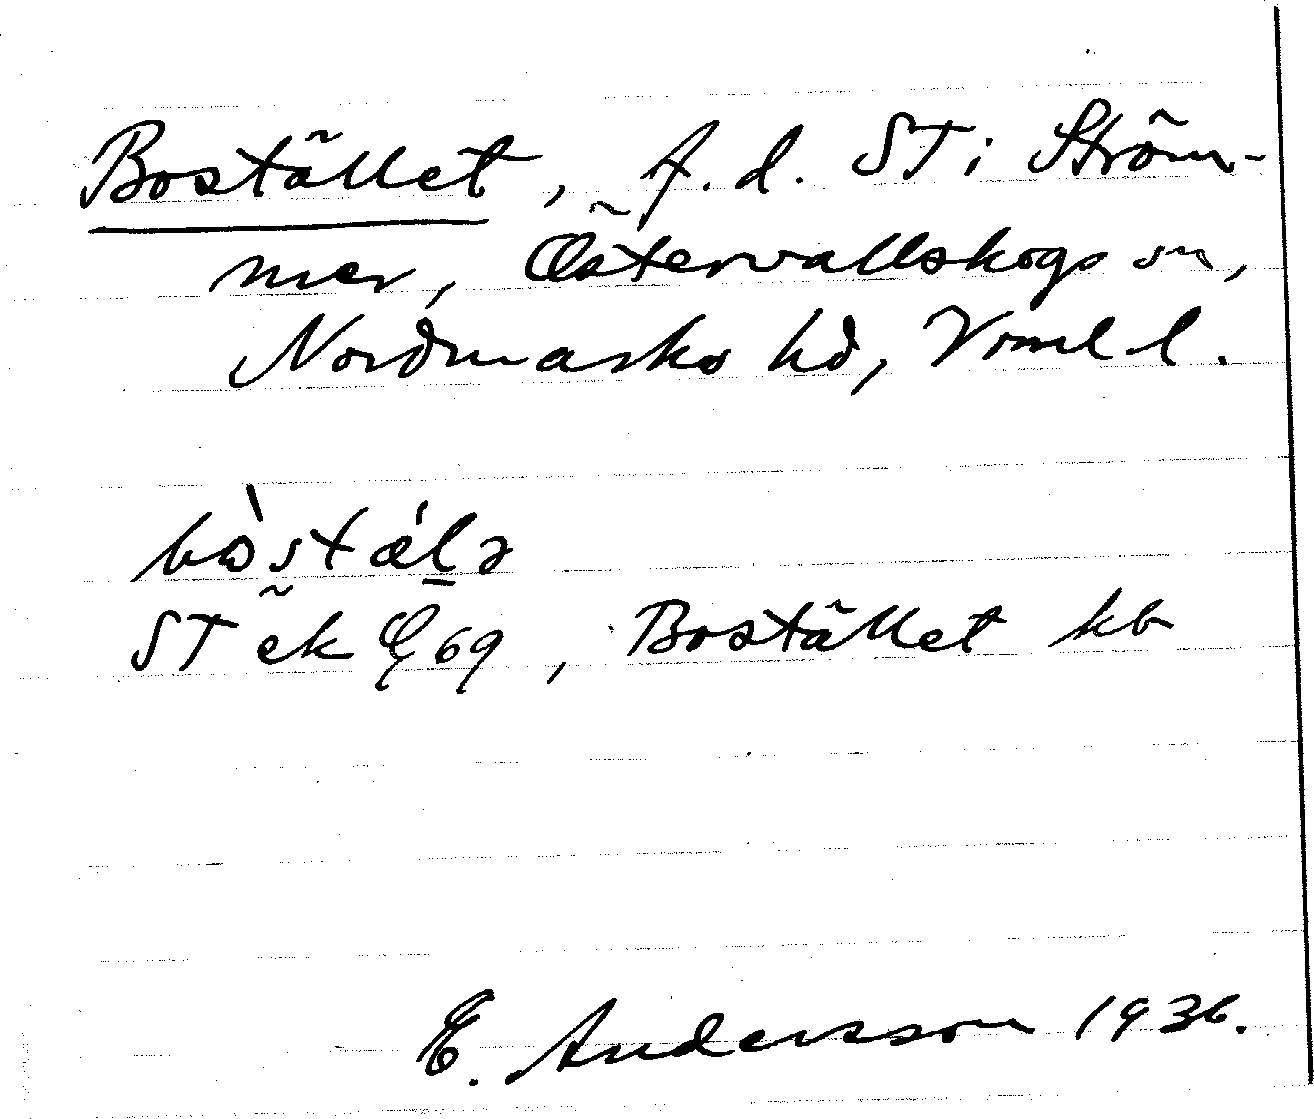 Bostället, f.d. ST i Ström-
mer, Östervallskogs sn,
Nordmarks hd, Vrml l.
bòstál̠ə
ST ëk 69, Bostället kb
E. Andersson 1936.